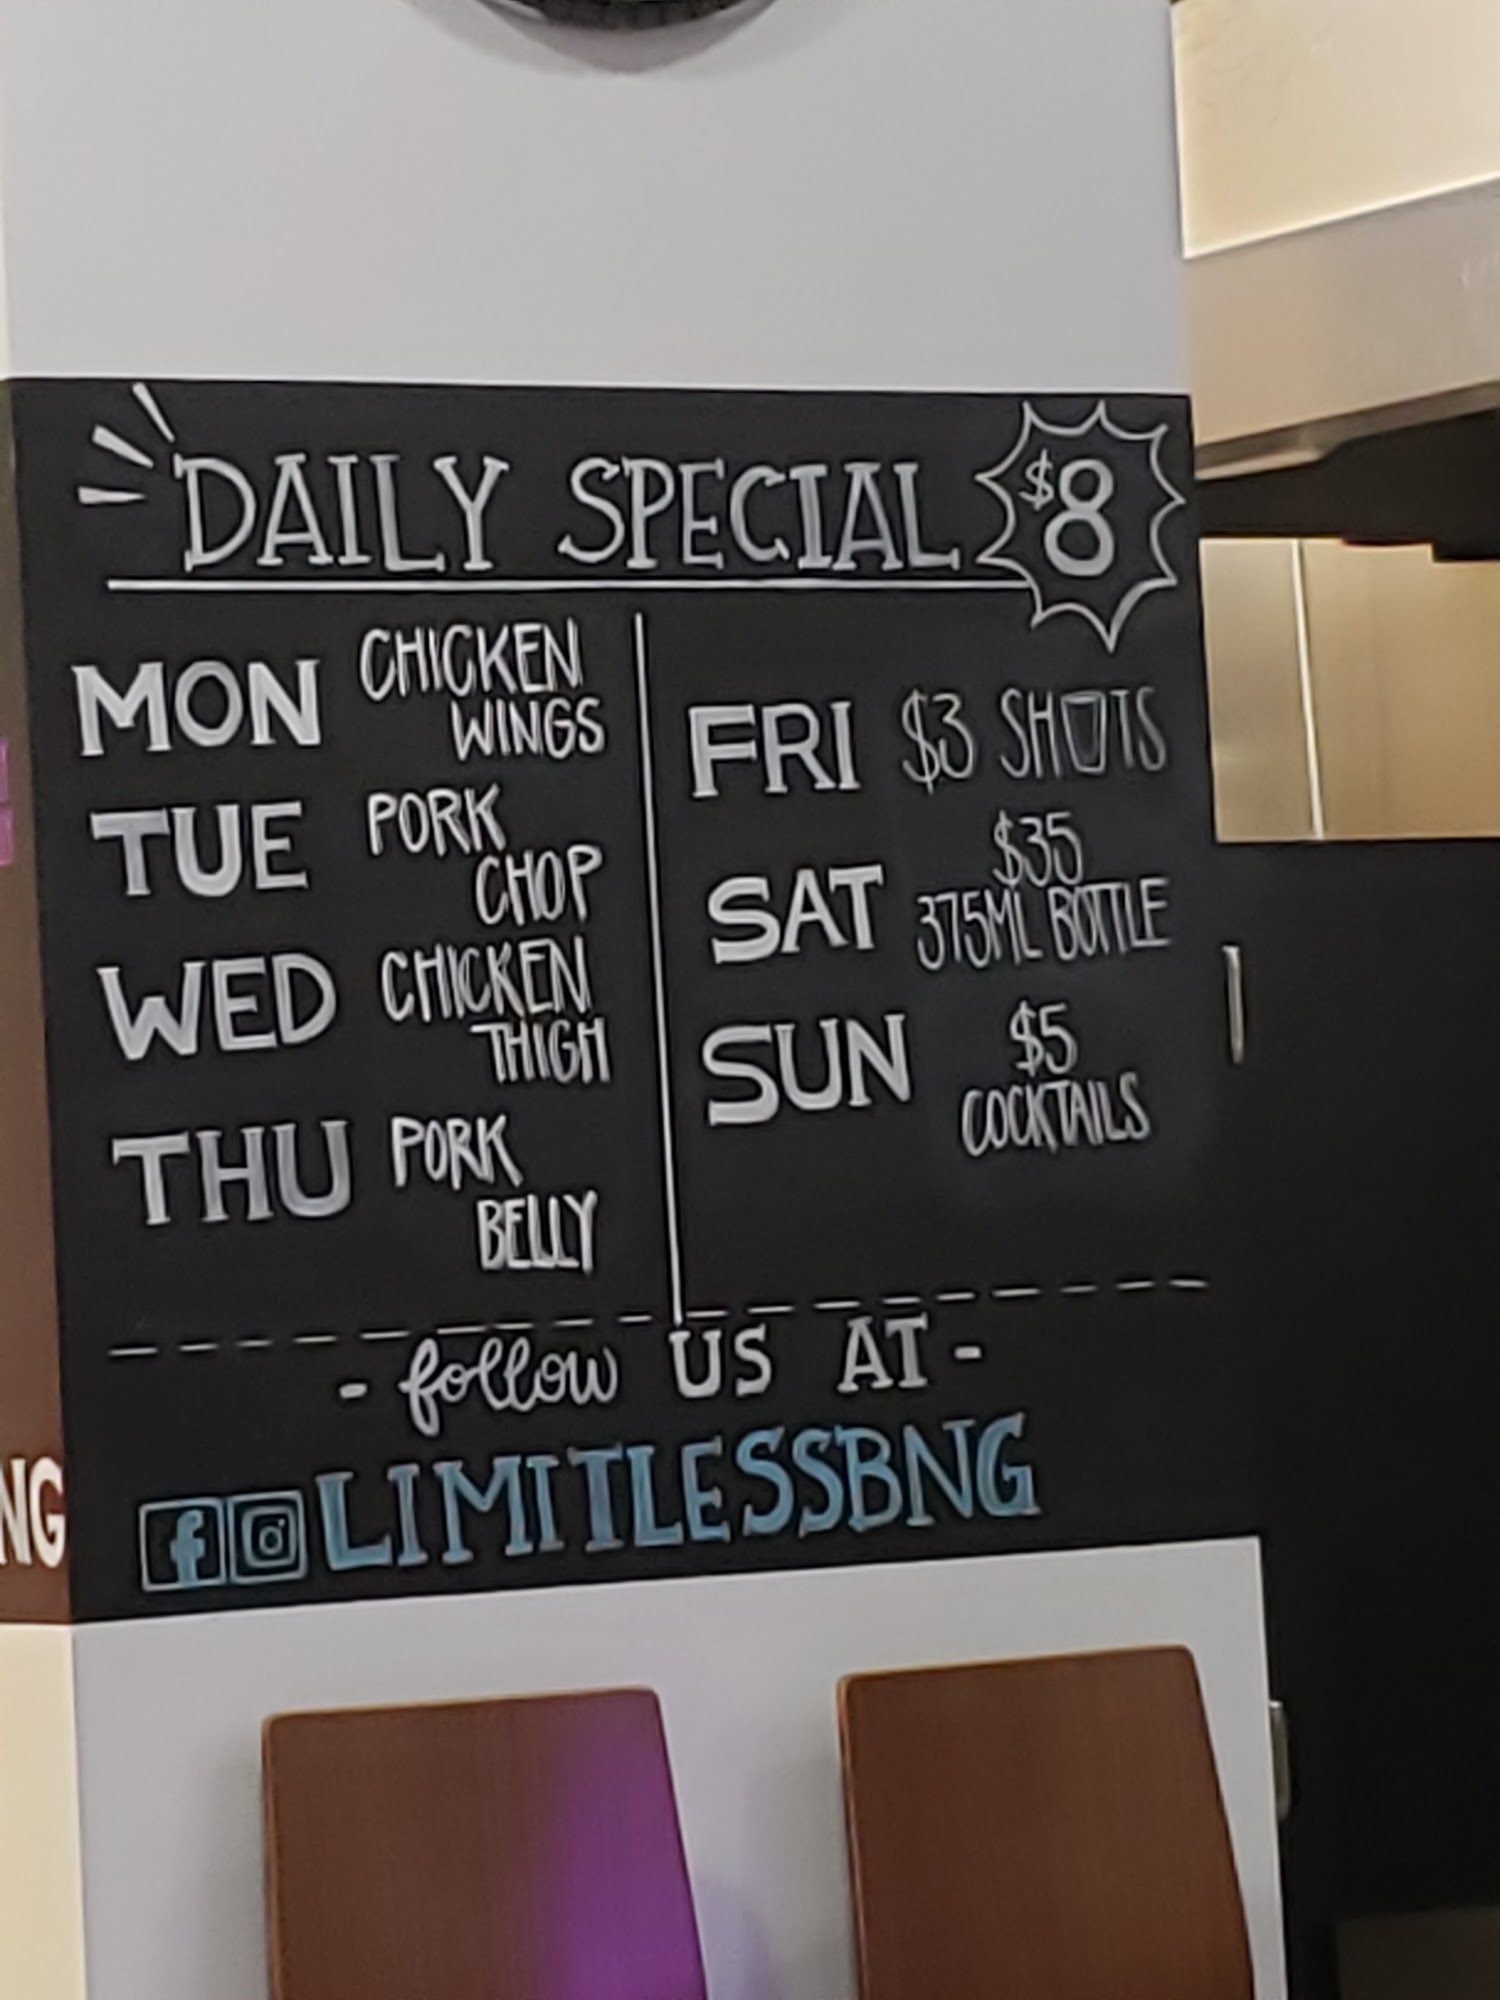 DAILY SPECIAL $8
MON CHICKEN
WINGS
TUE PORK
CHOP
WED CHICKEN
THIGH
THU PORK
BELLY
FRI $3 SHOTS
SAT $35
375ML BOTTLE
SUN $5
COCKTAILS
- follow US AT -
LIMITLESSBNG
NG